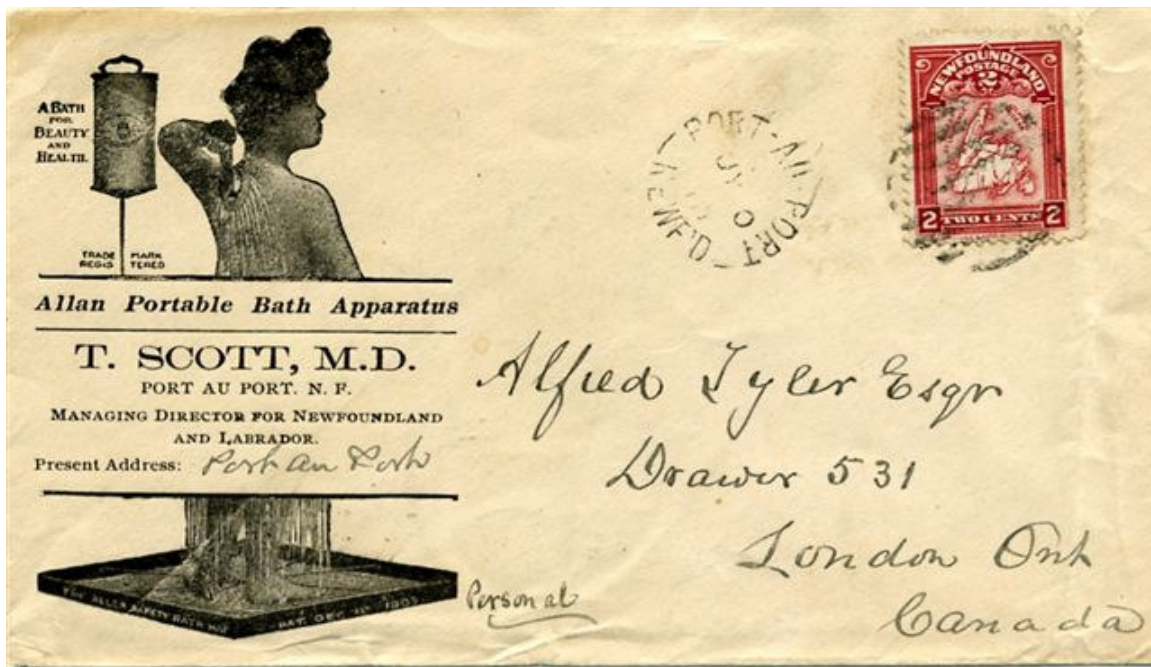 A BATH
FOR
BEAUTY
AND
HEALTH.
TRADE MARK
REGIS TERED
Allan Portable Bath Apparatus
T. SCOTT, M.D.
PORT AU PORT. N. F.
MANAGING DIRECTOR FOR NEWFOUNDLAND
AND LABRADOR.
Present Address: Port au Port
SAFETY BATH MAT PAT. DEC.
PORT-AU-PORT
NEWF'D
JY
NEWFOUNDLAND
POSTAGE
2
2 TWO CENTS 2
Alfred Tyler Esqr
Drawer 531
London Ont
Canada
Personal